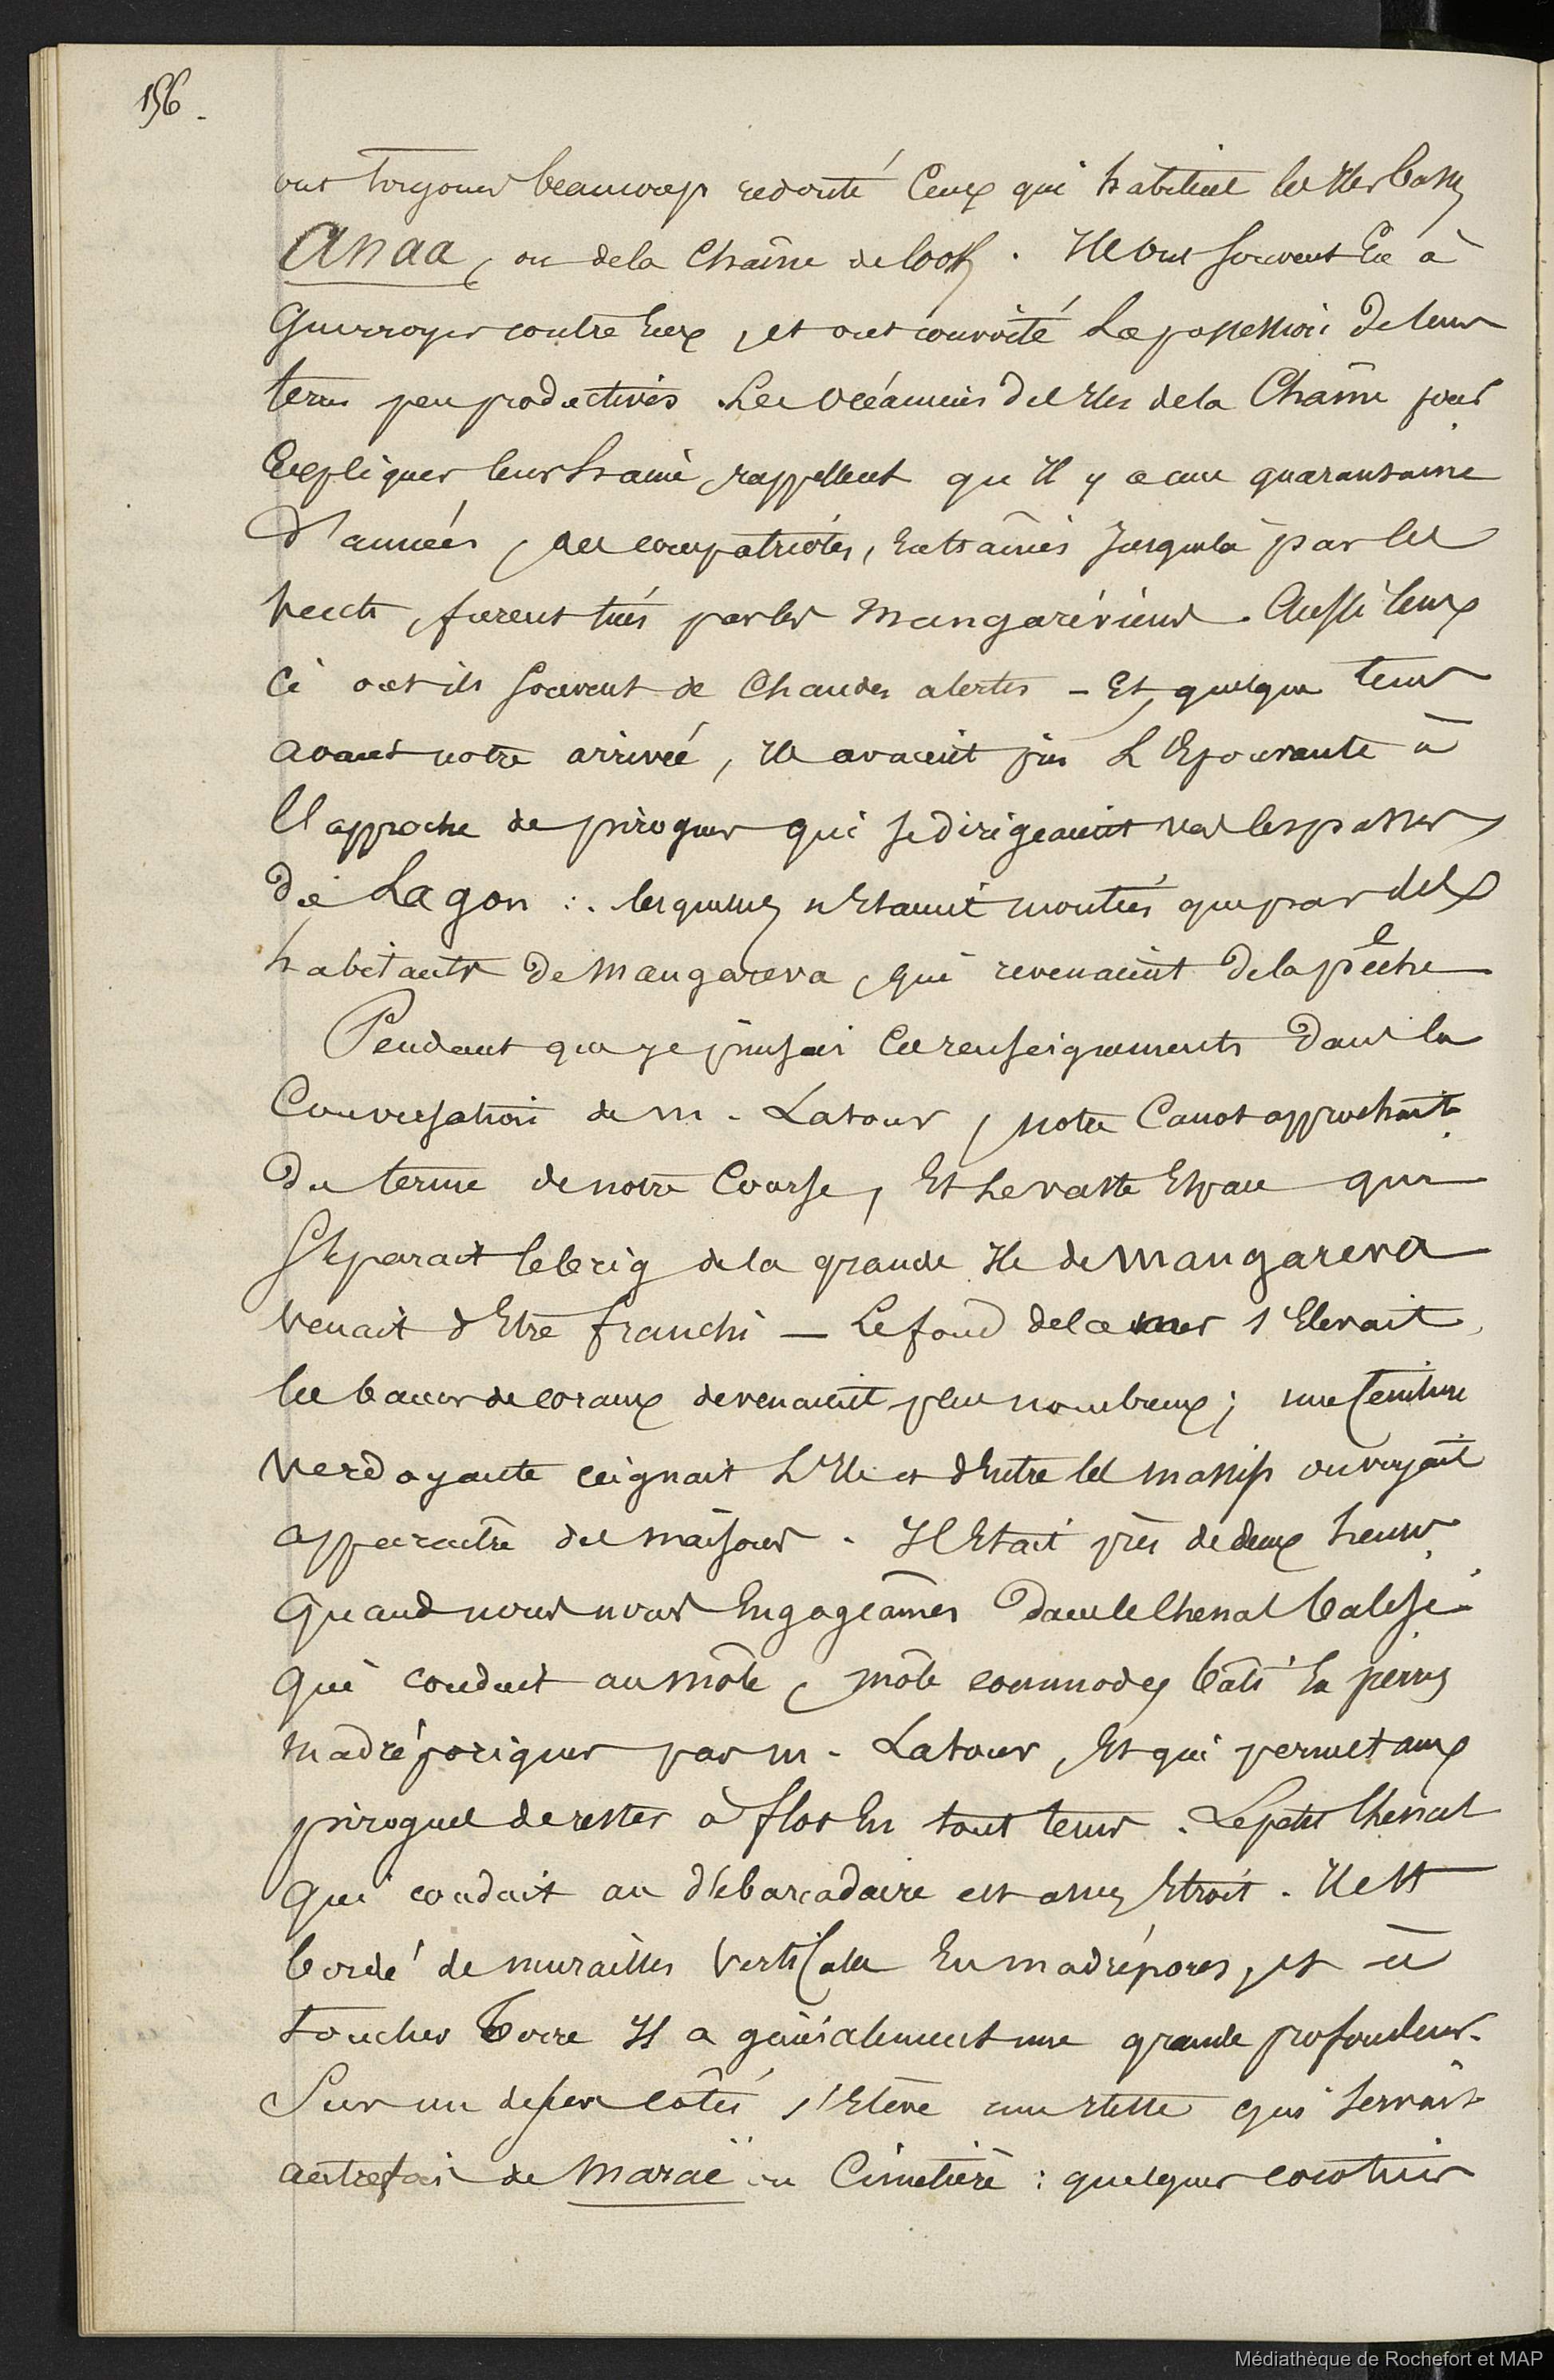 156.
ont toujours beaucoup redouté Ceux qui habitent les Iles basses
Anaa, ou de la Chaîne de Cook. Ils ont souvent Eu à
Guerroyer contre Eux, et ont convoité La possession de leurs
terres peu productives. Les Océaniens des Iles de la Chaîne pour
Expliquer leur haine, rappellent qu'Il y a une quarantaine
d'années, des compatriotes, Entraînés Jusque là par les
vents, furent tués par les Mangaréviens. Aussi Ceux
ci ont ils souvent de Chaudes alertes – Et, quelque tems
avant notre arrivée, Ils avaient pris L'Epouvante à
l'approche de pirogues qui se dirigeaient vers les passes
du Lagon : lesquelles n'Etaient montées que par des
habitants de Mangareva, qui revenaient de la pêche
Pendant que je puisais Ces renseignements dans la
Conversation de M. Latour, notre Canot approchait
du terme de notre Course, Et Le vaste Espace qui
Séparait le brig de la grande Ile de Mangareva
venait d'Etre franchi — Le fond de la mer s'Elevait,
les bancs de coraux devenaient plus nombreux ; une Ceinture
verdoyante ceignait L'Ile et d'Entre les massifs on voyait
apparaître des maisons. Il Etait près de deux heures
Quand nous nous Engageâmes dans le Chenal balisé
qui conduit au môle, môle commode, bâti En pierres
madréporiques par M. Latour, Et qui permet aux
pirogues de rester à flot En tout tems. Le petit Chenal
Qui conduit au débarcadaire est assez Etroit. Il est
bordé de murailles verticales En madrépores, et à
toucher terre Il a généralement une grande profondeur.
Sur un de ses côtés s'Elève une stelle qui servait
autrefois de Maraë ou Cimetière : quelques cocotiers
Médiathèque de Rochefort et MAP